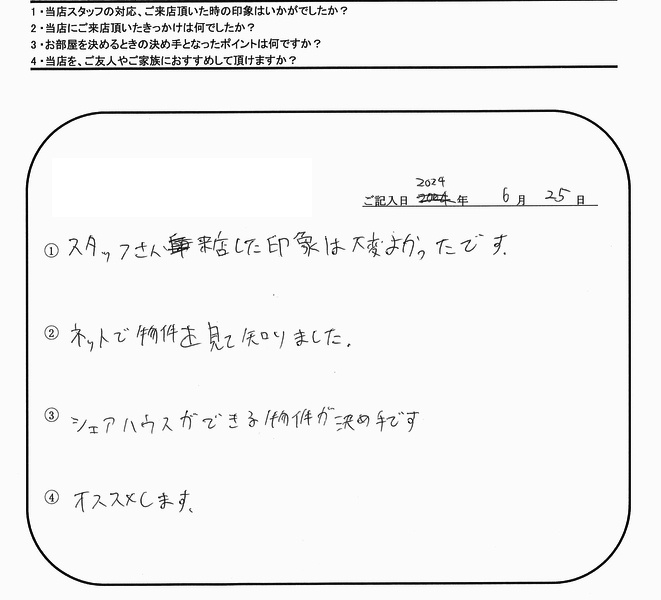 1・当店スタッフの対応、ご来店頂いた時の印象はいかがでしたか？
2・当店にご来店頂いたきっかけは何でしたか？
3・お部屋を決めるときの決め手となったポイントは何ですか？
4・当店を、ご友人やご家族におすすめして頂けますか？
2024
ご記入日 年 6月 25日
① スタッフさん来店した印象は大変よかったです。
② ネットで物件を見て知りました。
③ シェアハウスができる物件が決め手です
④ オススメします。